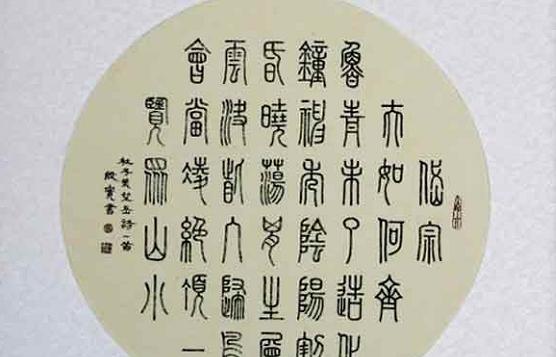 岱宗
夫如何齊
魯青未了造化
鐘神秀陰陽割
昏曉蕩胸生層
雲決眥入歸鳥
會當凌絕頂一
覽眾山小
杜子美望岳詩一首
書